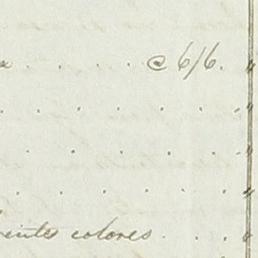 a . . . . . @ 6/6. "
. . . . . . . "
. . . . . . . "
. . . . . . . "
entes colores. . . . "